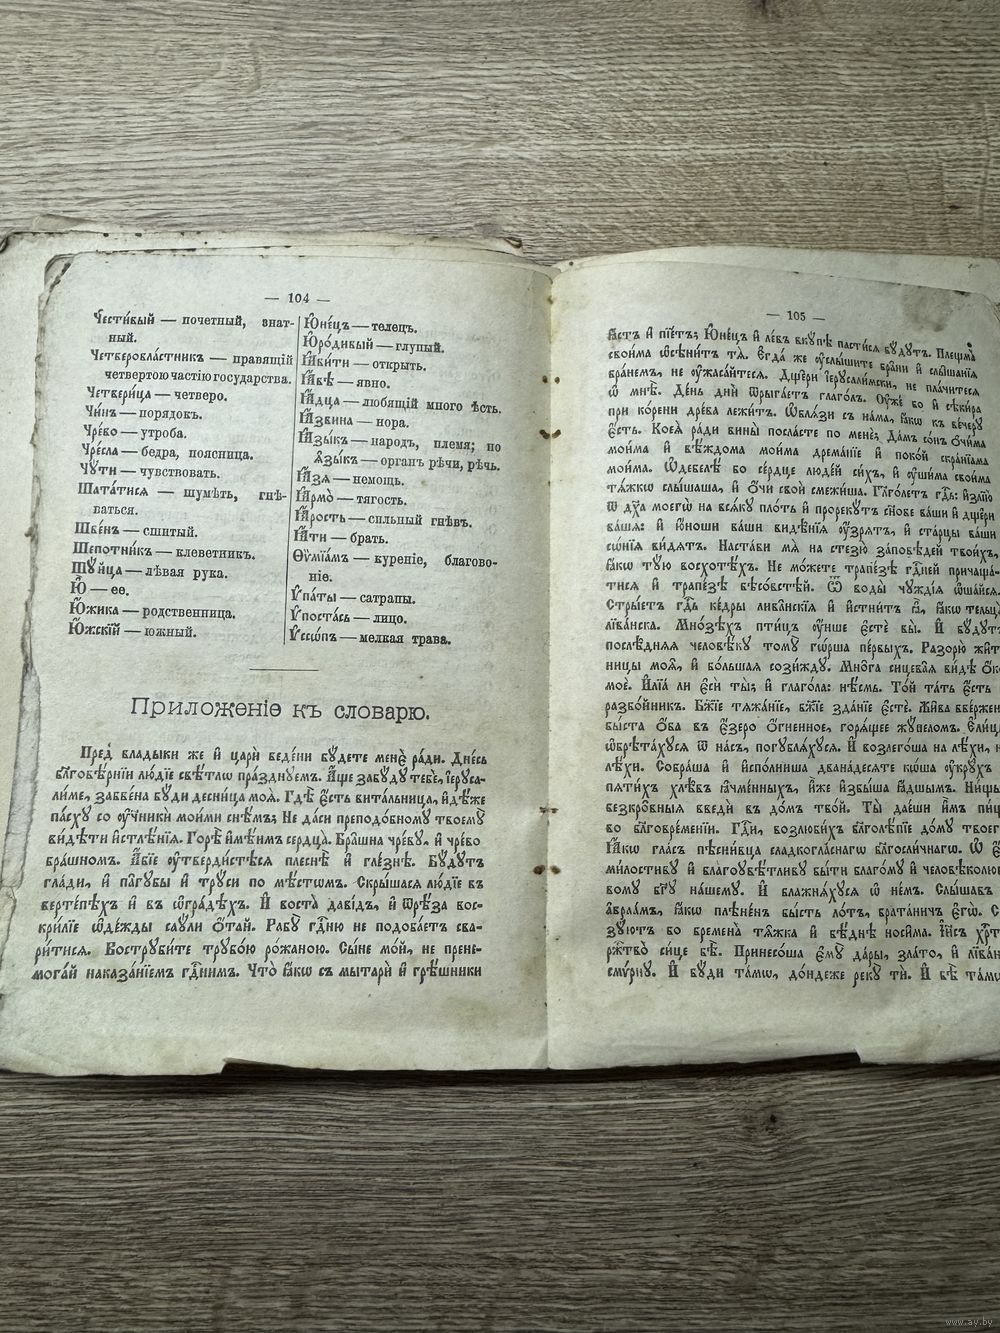 — 104 —
Чести́вый — почетный, знат-
ный.
Четверобла́стникъ — правящій
четвертою частію государства.
Четвери́ца — четверо.
Чи́нъ — порядокъ.
Чре́во — утроба.
Чре́сла — бедра, поясница.
Чꙋ́ти — чувствовать.
Шата́тися — шумѣть, гнѣ-
ваться.
Шве́нъ — сшитый.
Шепотни́къ — клеветникъ.
Шꙋ́йца — лѣвая рука.
Ю҆̀ — ее.
Ю҆́жика — родственница.
Ю҆́жскїй — южный.
Ю҆не́цъ — телецъ.
Ю҆ро́дивый — глупый.
Ꙗ҆ви́ти — открыть.
Ꙗ҆́вѣ — явно.
Ꙗ҆́дца — любящій много ѣсть.
Ꙗ҆́звина — нора.
Ꙗ҆зы́къ — народъ, племя; но
ѧ҆зы́къ — органъ рѣчи, рѣчь.
Ꙗ҆́зя — немощь.
Ꙗ҆рмо̀ — тягость.
Ꙗ҆́рость — сильный гнѣвъ.
Ꙗ҆́ти — брать.
Ѳѷмїа́мъ — куреніе, благово-
ніе.
Ѵ҆па́ты — сатрапы.
Ѵ҆поста́сь — лицо.
Ѵ҆ссѡ́пъ — мелкая трава.
Приложеніе къ словарю.
Пред̾ влады́ки же и҆ цари̑ веде́ни бꙋ́дете менє̀ ра́ди. Дне́сь
бл҃говѣ́рнїи лю́дїе свѣ́тлѡ пра́зднꙋемъ. А҆́ще забꙋ́дꙋ тебѐ, і҆ерꙋса-
ли́ме, забве́на бꙋ́ди десни́ца моѧ̀. Гдѣ̀ є҆́сть вита́льница, и҆дѣ́же
па́схꙋ со ѹ҆ч҃нки̑ мои́ми снѣ́мъ; Не да́си преподо́бномꙋ твоемꙋ̀
ви́дѣти и҆стлѣ́нїѧ. Горѣ̀ и҆мѣ́имъ сердца̀. Бра̑шна чре́вꙋ, и҆ чре́во
бра́шномъ. А҆́бїе ѹ҆тверди́стѣсѧ плеснѣ̀ и҆ гле́знѣ. Бꙋ́дꙋтъ
гла́ди, и҆ па́гꙋбы и҆ трꙋ́си по мѣ́стѡмъ. Скры́шасѧ лю́дїе въ
верте́пѣхъ и҆ въ ѡ҆гра́дѣхъ. И҆ воста̀ даві́дъ, и҆ ѿрѣ́за вос-
кри́лїе ѻ҆де́жды саꙋ́ли ѻ҆та́й. Рабꙋ̀ гд҇ню не подоба́етъ сва-
ри́тисѧ. Вострꙋби́те трꙋбо́ю ро́жаною. Сы́не мо́й, не прене-
мога́й наказа́нїемъ гд҇нимъ. Что̀ ꙗ҆́кѡ съ мытари̑ и҆ грѣ́шники
— 105 —
ꙗ҆́стъ и҆ пїе́тъ; Ю҆не́цъ и҆ ле́въ вкꙋ́пѣ пасти́сѧ бꙋ́дꙋтъ. Плещма̀
свои́ма ѡ҆сѣни́тъ тѧ̀. Є҆гда́ же ѹ҆слы́шите бра̑ни и҆ слы̑шанїѧ
бра́немъ, не ѹ҆жаса́йтесѧ. Дще́ри і҆ерꙋсали̑мски, не пла́читесѧ
ѡ҆ мнѣ̀. Де́нь днѝ ѿрыга́етъ глаго́лъ. Ѹ҆же́ бо и҆ сѣки́ра
при ко́рени дре́ва лежи́тъ. Ѡ҆блѧ́зи съ на́ма, ꙗ҆́кѡ къ ве́черꙋ
є҆́сть. Коеѧ̀ ра́ди вины̀ посла́сте по менѐ; Да́мъ со́нъ ѻ҆чи́ма
мои́ма и҆ вѣ́ждома мои́ма дрема́нїе и҆ поко́й скранїа́ма
мои́ма. Ѡ҆дебелѣ́ бо се́рдце люде́й си́хъ, и҆ ѹ҆ши́ма свои́ма
тѧ́жкѡ слы́шаша, и҆ ѻ҆́чи своѝ смежи́ша. Гл҃го́летъ гд҇ь: и҆злїю̀
ѿ дх҃а моегѡ̀ на всѧ́кꙋ пло́ть и҆ прорекꙋ́тъ сы́нове ва́ши и҆ дще́ри
ва́шѧ: и҆ ю҆́ноши ва́ши видѣ́нїѧ ѹ҆́зрѧтъ, и҆ ста́рцы ва́ши
сѡ́нїѧ ви́дѧтъ. Наста́ви мѧ̀ на стезю̀ за́повѣдей твои́хъ,
ꙗ҆́кѡ тꙋ́ю восхотѣ́хъ. Не мо́жете трапе́зѣ гд҇ней причаща́-
тисѧ и҆ трапе́зѣ бѣсо́встѣй. Ѿ воды̀ чꙋжді́ѧ ѡ҆ша́йсѧ.
Стры́етъ гд҇ь ке́дры лива̑нскїѧ и҆ и҆стни́тъ ѧ҆̀, ꙗ҆́кѡ тельца̀
лїва́нска. Мно́зѣхъ пти́цъ ѹ҆́нше є҆стѐ вы̀. И҆ бꙋ́дꙋтъ
послѣ́днѧѧ человѣ́кꙋ томꙋ̀ гѡ́рша пе́рвыхъ. Разорю̀ жи́т-
ницы моѧ̑, и҆ бо́льшаѧ сози́ждꙋ. Мнѡ́га сицева̑ѧ ви́дѣ ѻ҆́ко
моѐ. И҆лїа́ ли є҆сѝ ты̀; и҆ глаго́ла: нѣ́смь. То́й та́ть є҆́сть
разбо́йникъ. Бж҃їе тѧжа́нїе, бж҃їе зда́нїе є҆стѐ. Жи̑ва вве́ржен
бы́ста ѻ҆́ба въ є҆́зеро ѻ҆́гненное, горѧ́щее жꙋ́пеломъ. Є҆ли́цы
ѡ҆брѣта́хꙋсѧ ѿ на́съ, погꙋблѧ́хꙋсѧ. И҆ возлего́ша на лѣ́хи, н
лѣ́хи. Собра́ша и҆ и҆спо́лниша двана́десѧте кѡ́ша ѹ҆крꙋ̑хъ
пѧти́хъ хлѣ̑бъ ꙗ҆чме́нныхъ, и҆̀же и҆збы́ша ꙗ҆́дшымъ. Ни́щы
безкрѡ́вныѧ введѝ въ до́мъ тво́й. Ты̀ дае́ши и҆̀мъ пи́щ
во бл҃говре́менїи. Гд҇и, возлюби́хъ бл҃голѣ́пїе до́мꙋ твоег
Ꙗ҆́кѡ гла́съ пѣсни́вца сладкогла́снагѡ бл҃госли́чнагѡ. Ѽ є҆
ми́лостивꙋ и҆ благоꙋвѣ́тливꙋ бы́ти благо́мꙋ и҆ человѣколю́
вомꙋ бг҃ꙋ на́шемꙋ. И҆ блажнѧ́хꙋсѧ ѡ҆ не́мъ. Слы́шавъ
а҆враа́мъ, ꙗ҆́кѡ плѣне́нъ бы́сть ло́тъ, брата́ничъ є҆гѡ̀. С
зꙋ́ютъ во времена̀ тѧ̑жка и҆ бѣ́днѣ носи̑ма. І҆и҃съ хр҇т
рж҇тво̀ си́це бѣ̀. Принесо́ша є҆мꙋ̀ да́ры, зла́то, и҆ лїва́н
смѵ́рнꙋ. И҆ бꙋ́ди та́мѡ, до́ндеже рекꙋ̀ тѝ. И҆ бѣ̀ та́мѡ
www.ay.by